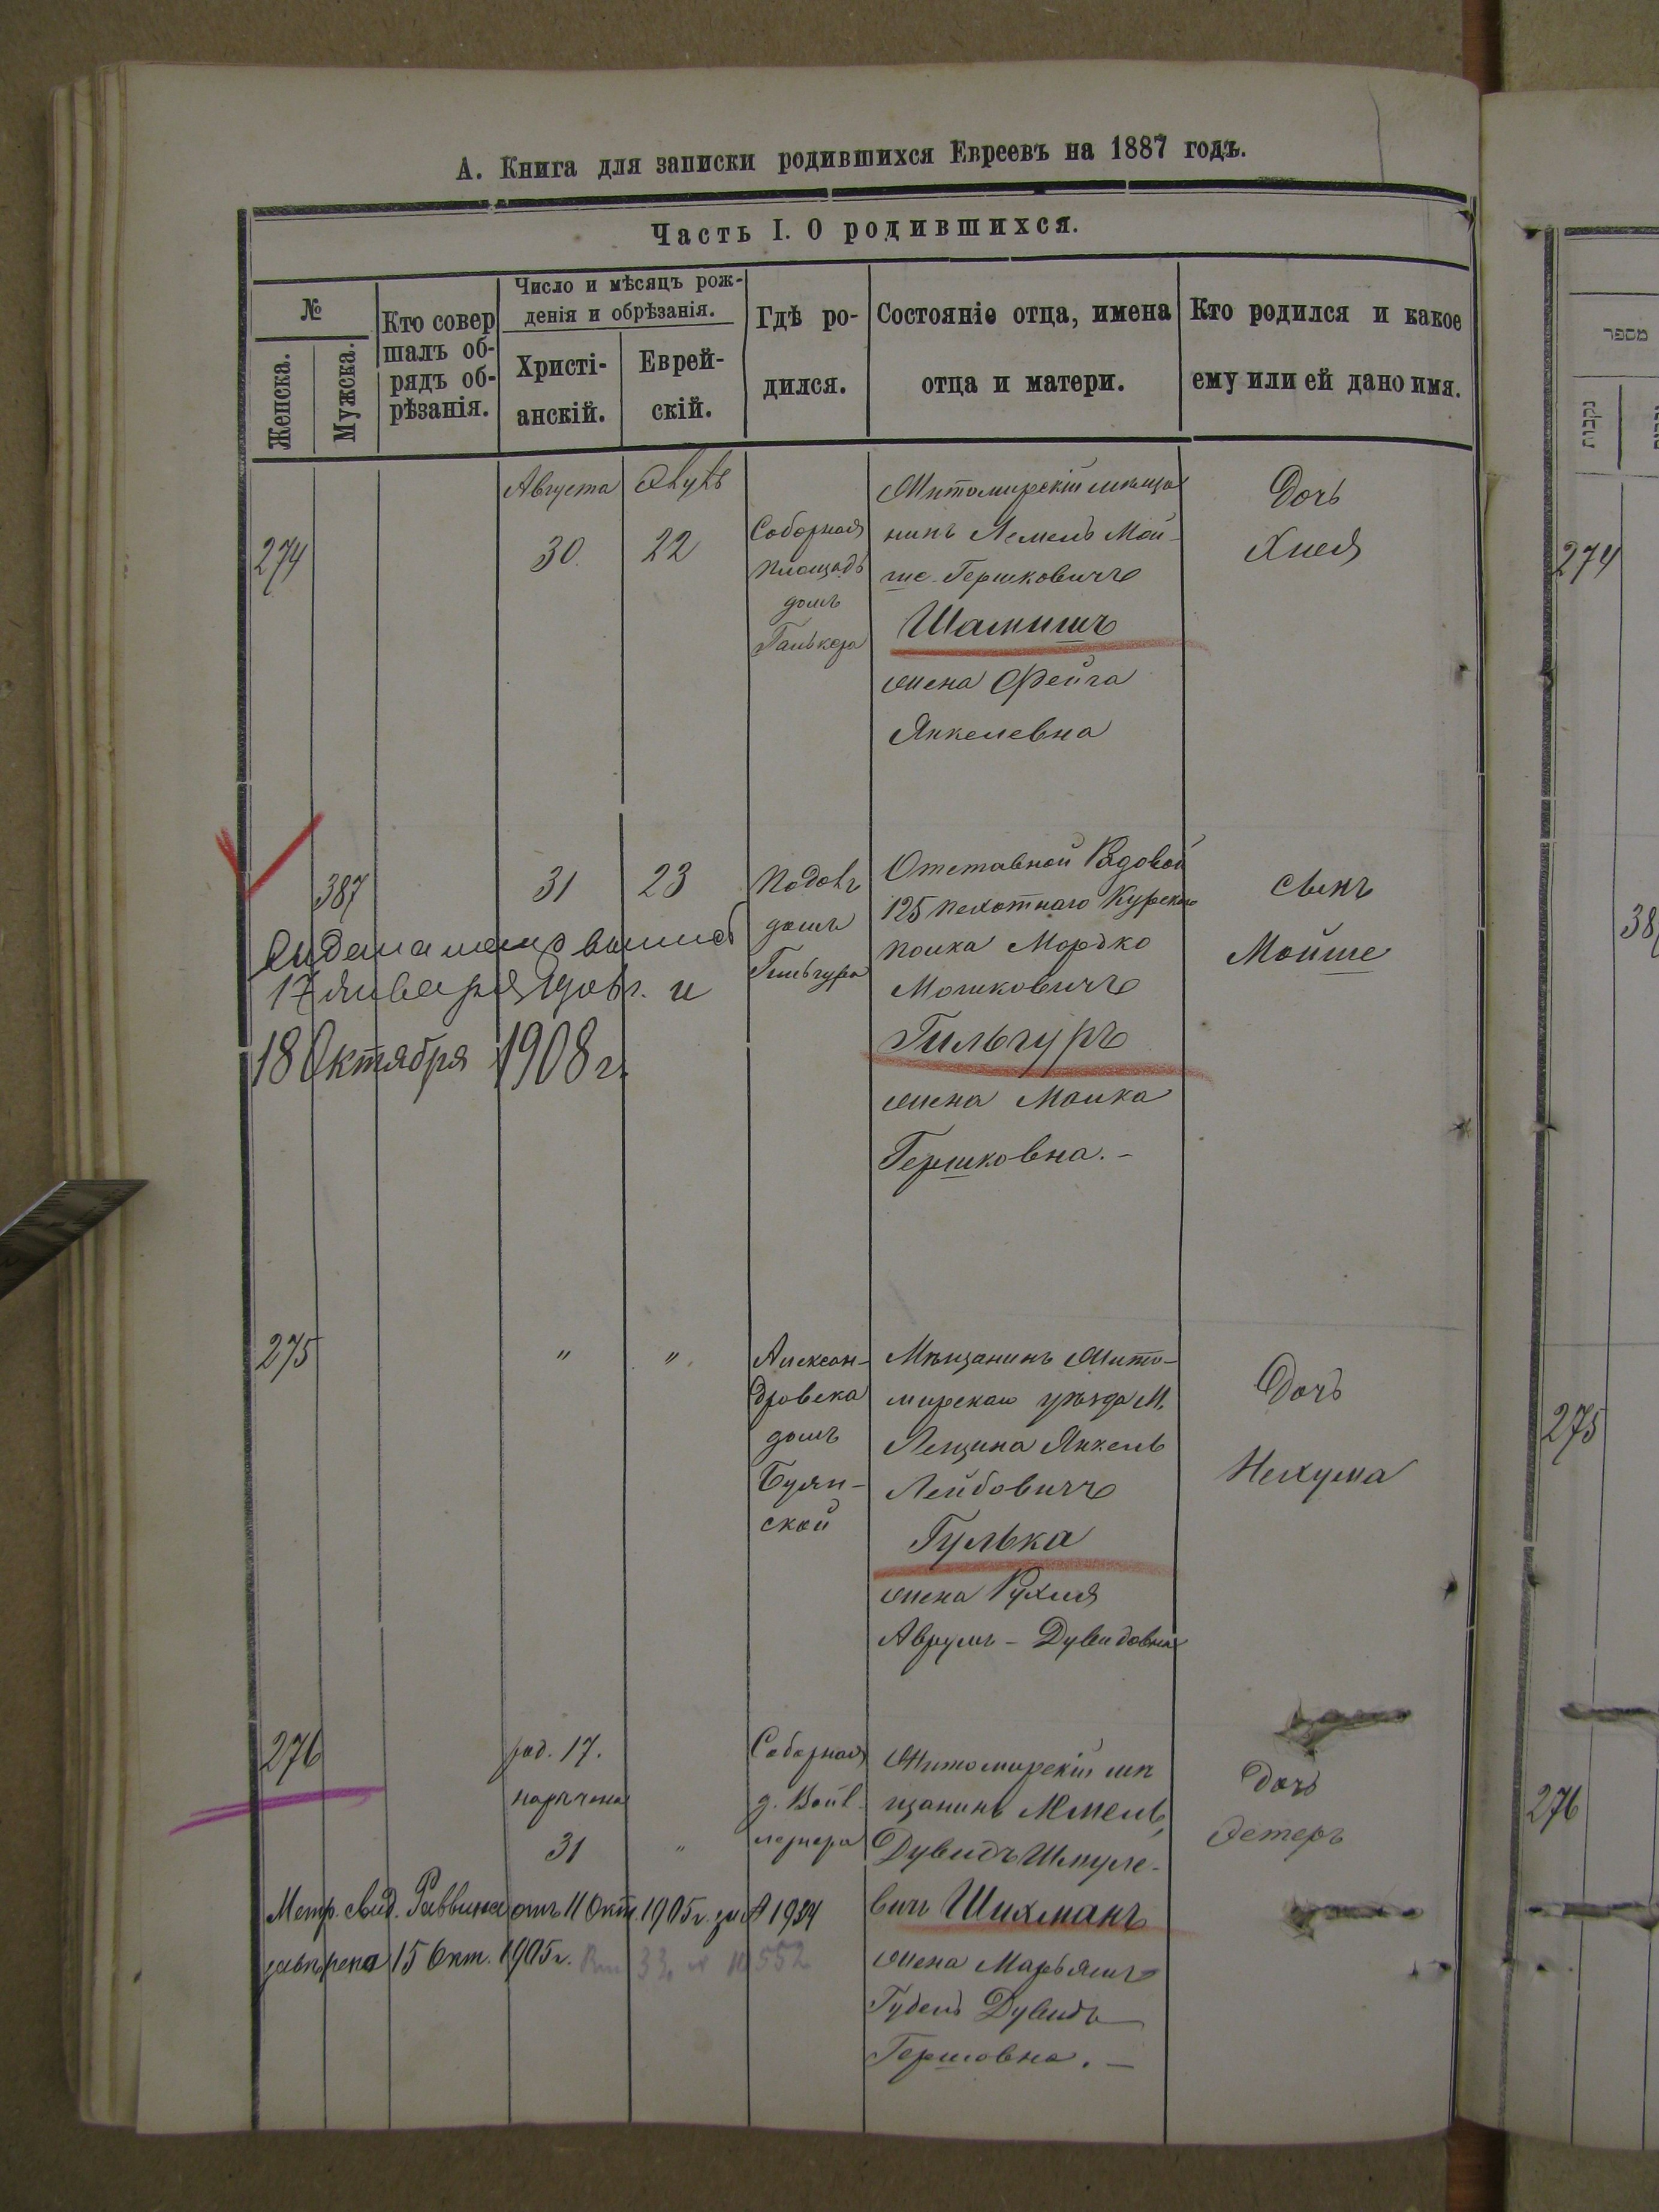 А. Книга для записки родившихся Евреевъ на 1887 годъ.
Часть I. О родившихся.
№
Женска.
Мужска.
Кто совер
шалъ об-
рядъ об-
рѣзанія.
Число и мѣсяцъ рож-
денія и обрѣзанія.
Христі-
анскій.
Еврей-
скій.
Гдѣ ро-
дился.
Состояніе отца, имена
отца и матери.
Кто родился и какое
ему или ей дано имя.
274
Августа
30
22
Соборная
площадь
домъ
Житомирскій мѣща
нинъ Лемель Мой-
ше-Гершковичъ
Шамишъ
жена Фейга
Янкелевна
Дочь
Хная
387
31
23
домъ
Отставной Рядовой
125 пехотнаго Курскаго
полка Мордко
Мошковичъ
Гильгуръ
жена Малка
Гершковна.-
сынъ
Мойше
17 января
18 Октября 1908 г.
275
"
"
Алексан-
дровска
домъ
Буян-
ской
Мѣщанинъ Жито-
мирскаго уѣзда М.
Лещина Янкель
Лейбовичъ
Гулька
жена Рухля
Аврумъ-Дувидовна
Дочь
Нехума
276
род. 17.
наречена
31
"
Соборная
Житомирскій мѣ
щанинъ
Дувидъ Шмуле-
вичъ Шихманъ
жена Марьямъ
Гудель Дувидъ
Гершовна.-
Дочь
Эстеръ
Метр. свид. Раввина отъ 11 Окт. 1905 г. за № 1934
завѣрена 15 Окт. 1905 г.
מספר
נקבות
274
38
275
276